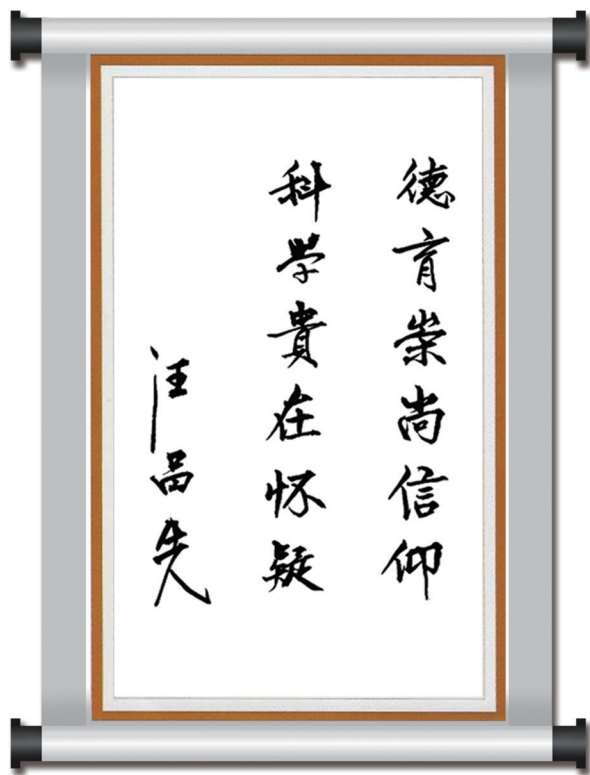 德育崇尚信仰
科学貴在怀疑
汪品先